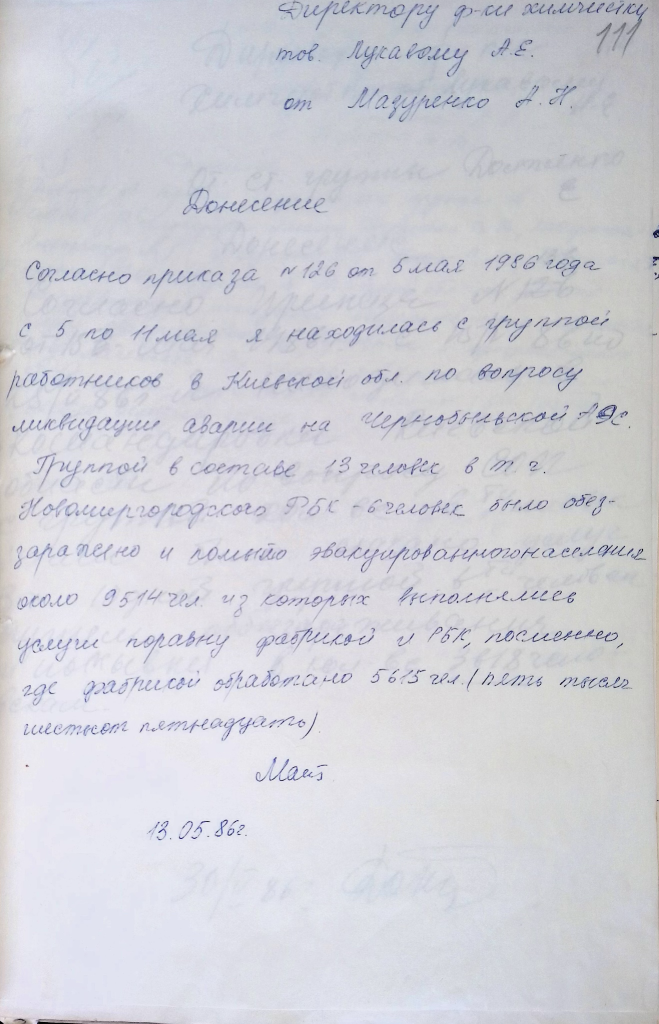 Директору ф-ки химчистки
111
тов. Лукавому А.Е.
от Мазуренко А.Н.
Донесение
Согласно приказа №126 от 5 мая 1986 года
с 5 по 11 мая я находилась с группой
работников в Киевской обл. по вопросу
ликвидации аварии на Чернобыльской АЭС.
Группой в составе 13 человек в т.ч.
Новомиргородского РБК - 6 человек было обез-
заражено и помыто эвакуированного населения
около 9514 чел. из которых выполнялись
услуги поравну фабрикой и РБК, посменно,
где фабрикой обработано 5615 чел. (пять тысяч
шестьсот пятнадцать)
13.05.86г.